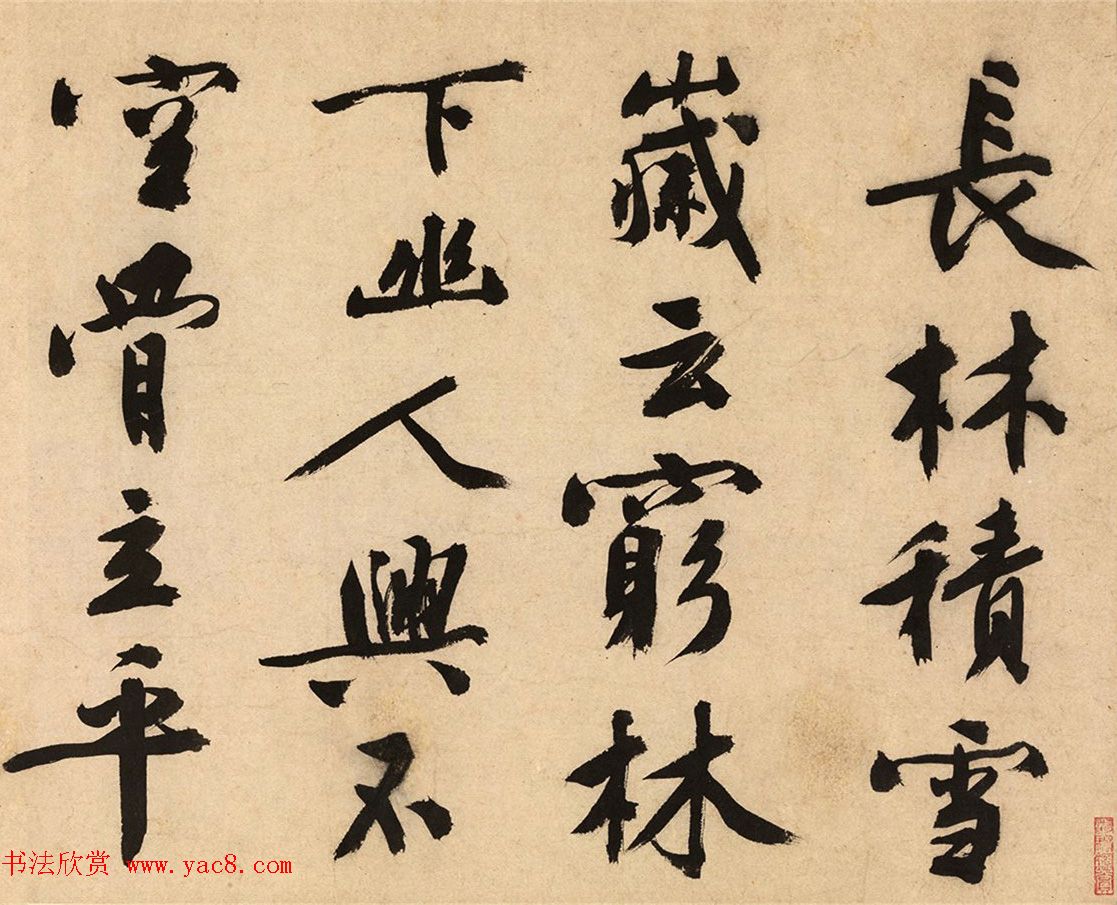 長林積雪
歲云窮林
下幽人興不
空骨立平
书法欣赏 www.yac8.com